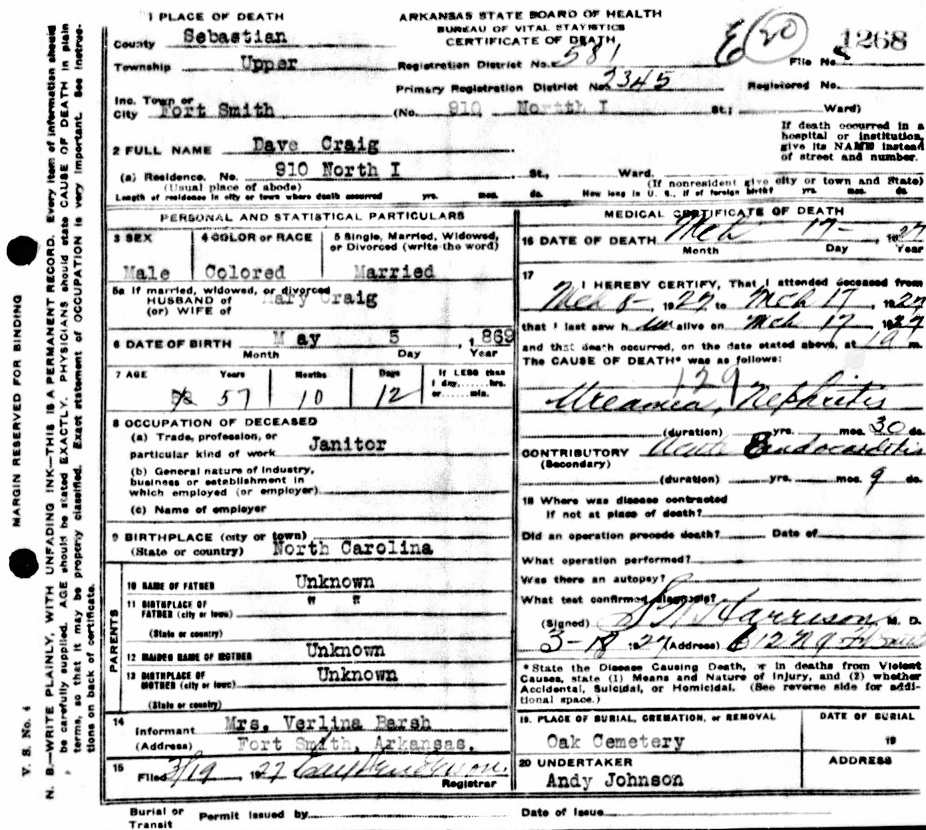 1 PLACE OF DEATH
ARKANSAS STATE BOARD OF HEALTH
BUREAU OF VITAL STATISTICS
CERTIFICATE OF DEATH
County Sebastian
Township Upper
Registration District No. 581
File No. 1268
E 20
Primary Registration District No. 2345
Registered No.
Inc. Town or
City Fort Smith (No. 910 North I St.; Ward)
If death occurred in a
hospital or institution,
give its NAME instead
of street and number.
2 FULL NAME Dave Craig
(a) Residence. No. 910 North I St., Ward.
(Usual place of abode) (If nonresident give city or town and State)
Length of residence in city or town where death occurred yrs. mos. ds. How long in U. S., if of foreign birth? yrs. mos. ds.
PERSONAL AND STATISTICAL PARTICULARS
3 SEX 4 COLOR or RACE 5 Single, Married, Widowed,
or Divorced (write the word)
Male Colored Married
5a If married, widowed, or divorced
HUSBAND of Mary Craig
(or) WIFE of
6 DATE OF BIRTH May 5, 1869
Month Day Year
7 AGE Years Months Days If LESS than
1 day,....hrs.
or ....min.
57 10 12
8 OCCUPATION OF DECEASED
(a) Trade, profession, or
particular kind of work Janitor
(b) General nature of industry,
business or establishment in
which employed (or employer)
(c) Name of employer
9 BIRTHPLACE (city or town)
(State or country) North Carolina
PARENTS
10 NAME OF FATHER Unknown
11 BIRTHPLACE OF
FATHER (city or town) " "
(State or country)
12 MAIDEN NAME OF MOTHER Unknown
13 BIRTHPLACE OF
MOTHER (city or town) Unknown
(State or country)
14
Informant Mrs. Verlina Barsh
(Address) Fort Smith, Arkansas.
15
Filed 3/19, 1927
Registrar
MEDICAL CERTIFICATE OF DEATH
16 DATE OF DEATH Mch 17-, 1927
Month Day Year
17
I HEREBY CERTIFY, That I attended deceased from
Mch 8-, 1927, to Mch 17, 1927
that I last saw him alive on Mch 17, 1927
and that death occurred, on the date stated above, at m.
The CAUSE OF DEATH* was as follows:
129
Ureamia, Nephritis
(duration) yrs. mos. 30 ds.
CONTRIBUTORY Acute Endocarditis
(Secondary)
(duration) yrs. mos. 9 ds.
18 Where was disease contracted
if not at place of death?
Did an operation precede death? Date of
What operation performed?
Was there an autopsy?
What test confirmed diagnosis?
(Signed) Harrison, M. D.
3-18-27 (Address)
*State the Disease Causing Death, or in deaths from Violent
Causes, state (1) Means and Nature of Injury, and (2) whether
Accidental, Suicidal, or Homicidal. (See reverse side for addi-
tional space.)
19. PLACE OF BURIAL, CREMATION, or REMOVAL DATE OF BURIAL
Oak Cemetery 19
20 UNDERTAKER ADDRESS
Andy Johnson
Burial or
Transit Permit Issued by Date of Issue
V. S. No. 4
MARGIN RESERVED FOR BINDING
N. B.—WRITE PLAINLY, WITH UNFADING INK—THIS IS A PERMANENT RECORD. Every item of information should
be carefully supplied. AGE should be stated EXACTLY. PHYSICIANS should state CAUSE OF DEATH in plain
terms, so that it may be properly classified. Exact statement of OCCUPATION is very important. See instruc-
tions on back of certificate.